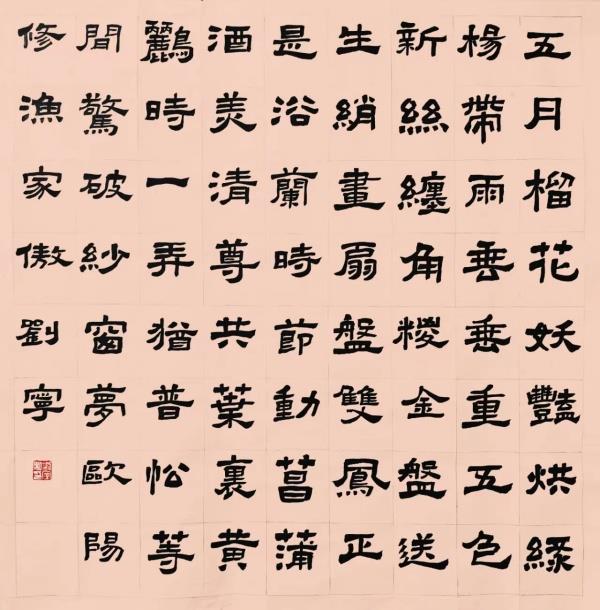 五月榴花妖豔烘綠
楊帶雨垂垂重五色
新絲纏角糉金盤送
生綃畫扇盤雙鳳正
是浴蘭時節動菖蒲
酒美清尊共葉裏黃
鸝時一弄猶普忪等
間驚破紗窗夢歐陽
修漁家傲劉寧